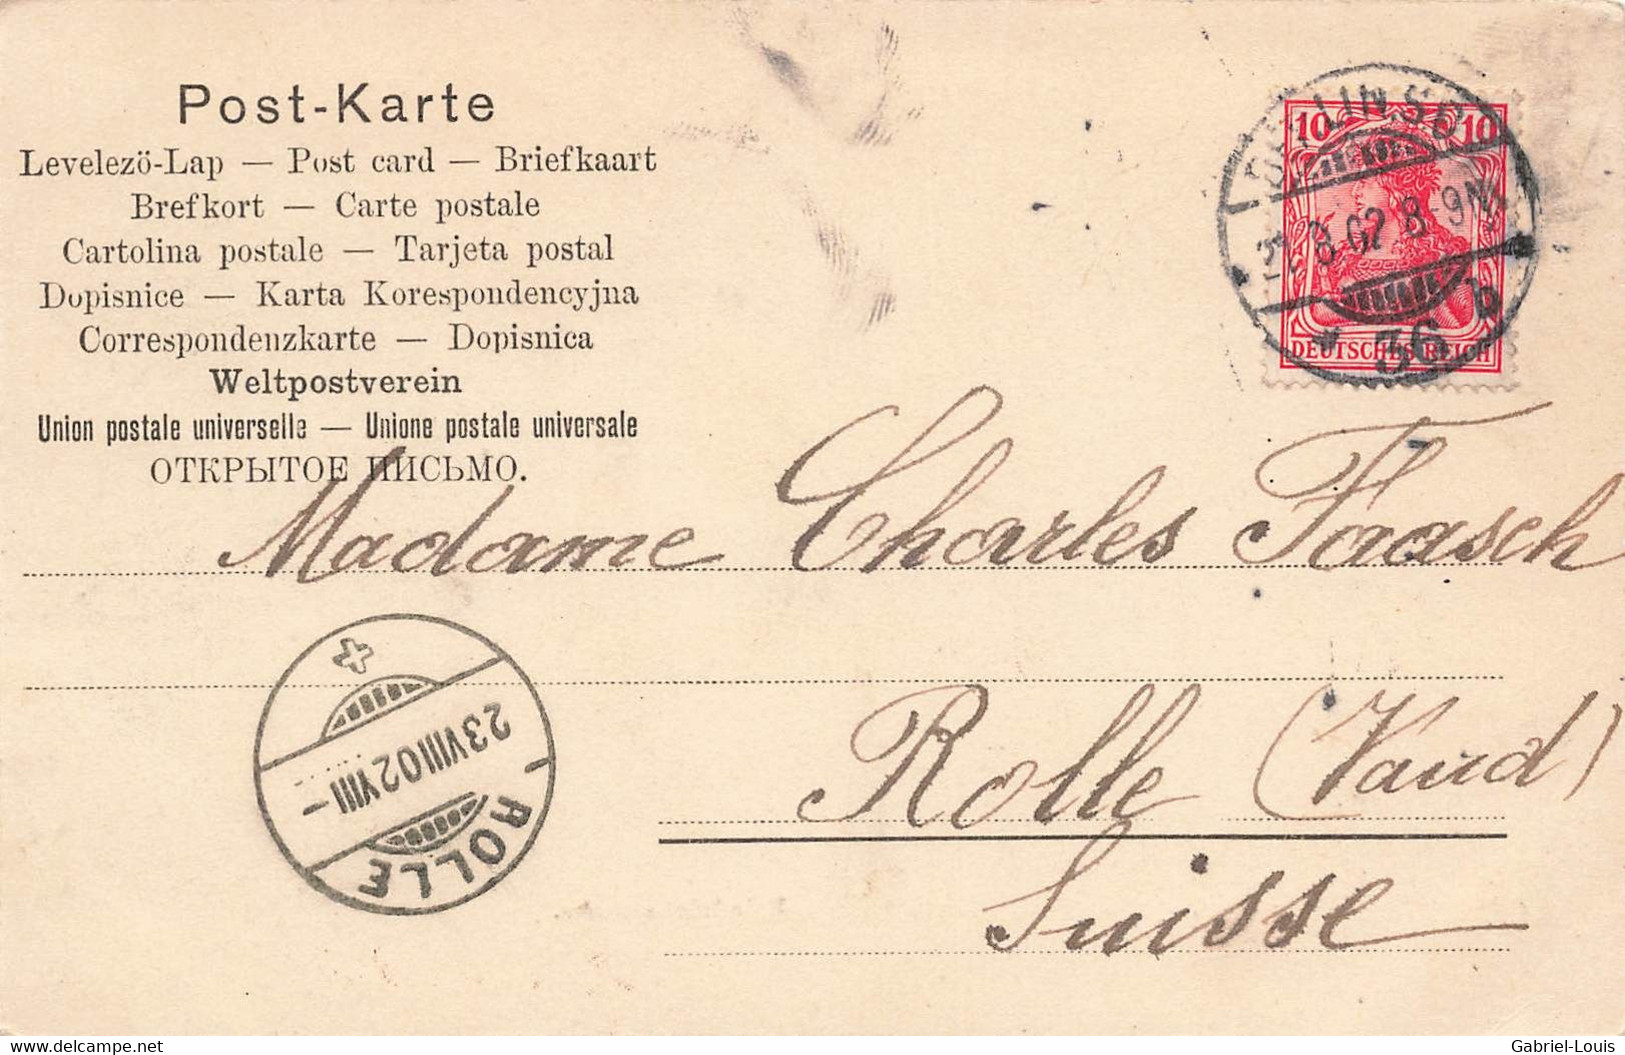 Post-Karte
Levelezö-Lap — Post card — Briefkaart
Brefkort — Carte postale
Cartolina postale — Tarjeta postal
Dopisnice — Karta Korespondencyjna
Correspondenzkarte — Dopisnica
Weltpostverein
Union postale universelle — Unione postale universale
ОТКРЫТОЕ ПИСЬМО.
10 10
DEUTSCHES REICH
BERLIN. SO
8-9N
* 36 b
Madame Charles Faasch
Rolle (Vaud)
Suisse
23 VIII 02 VIII -
ROLLE
www.delcampe.net
Gabriel-Louis